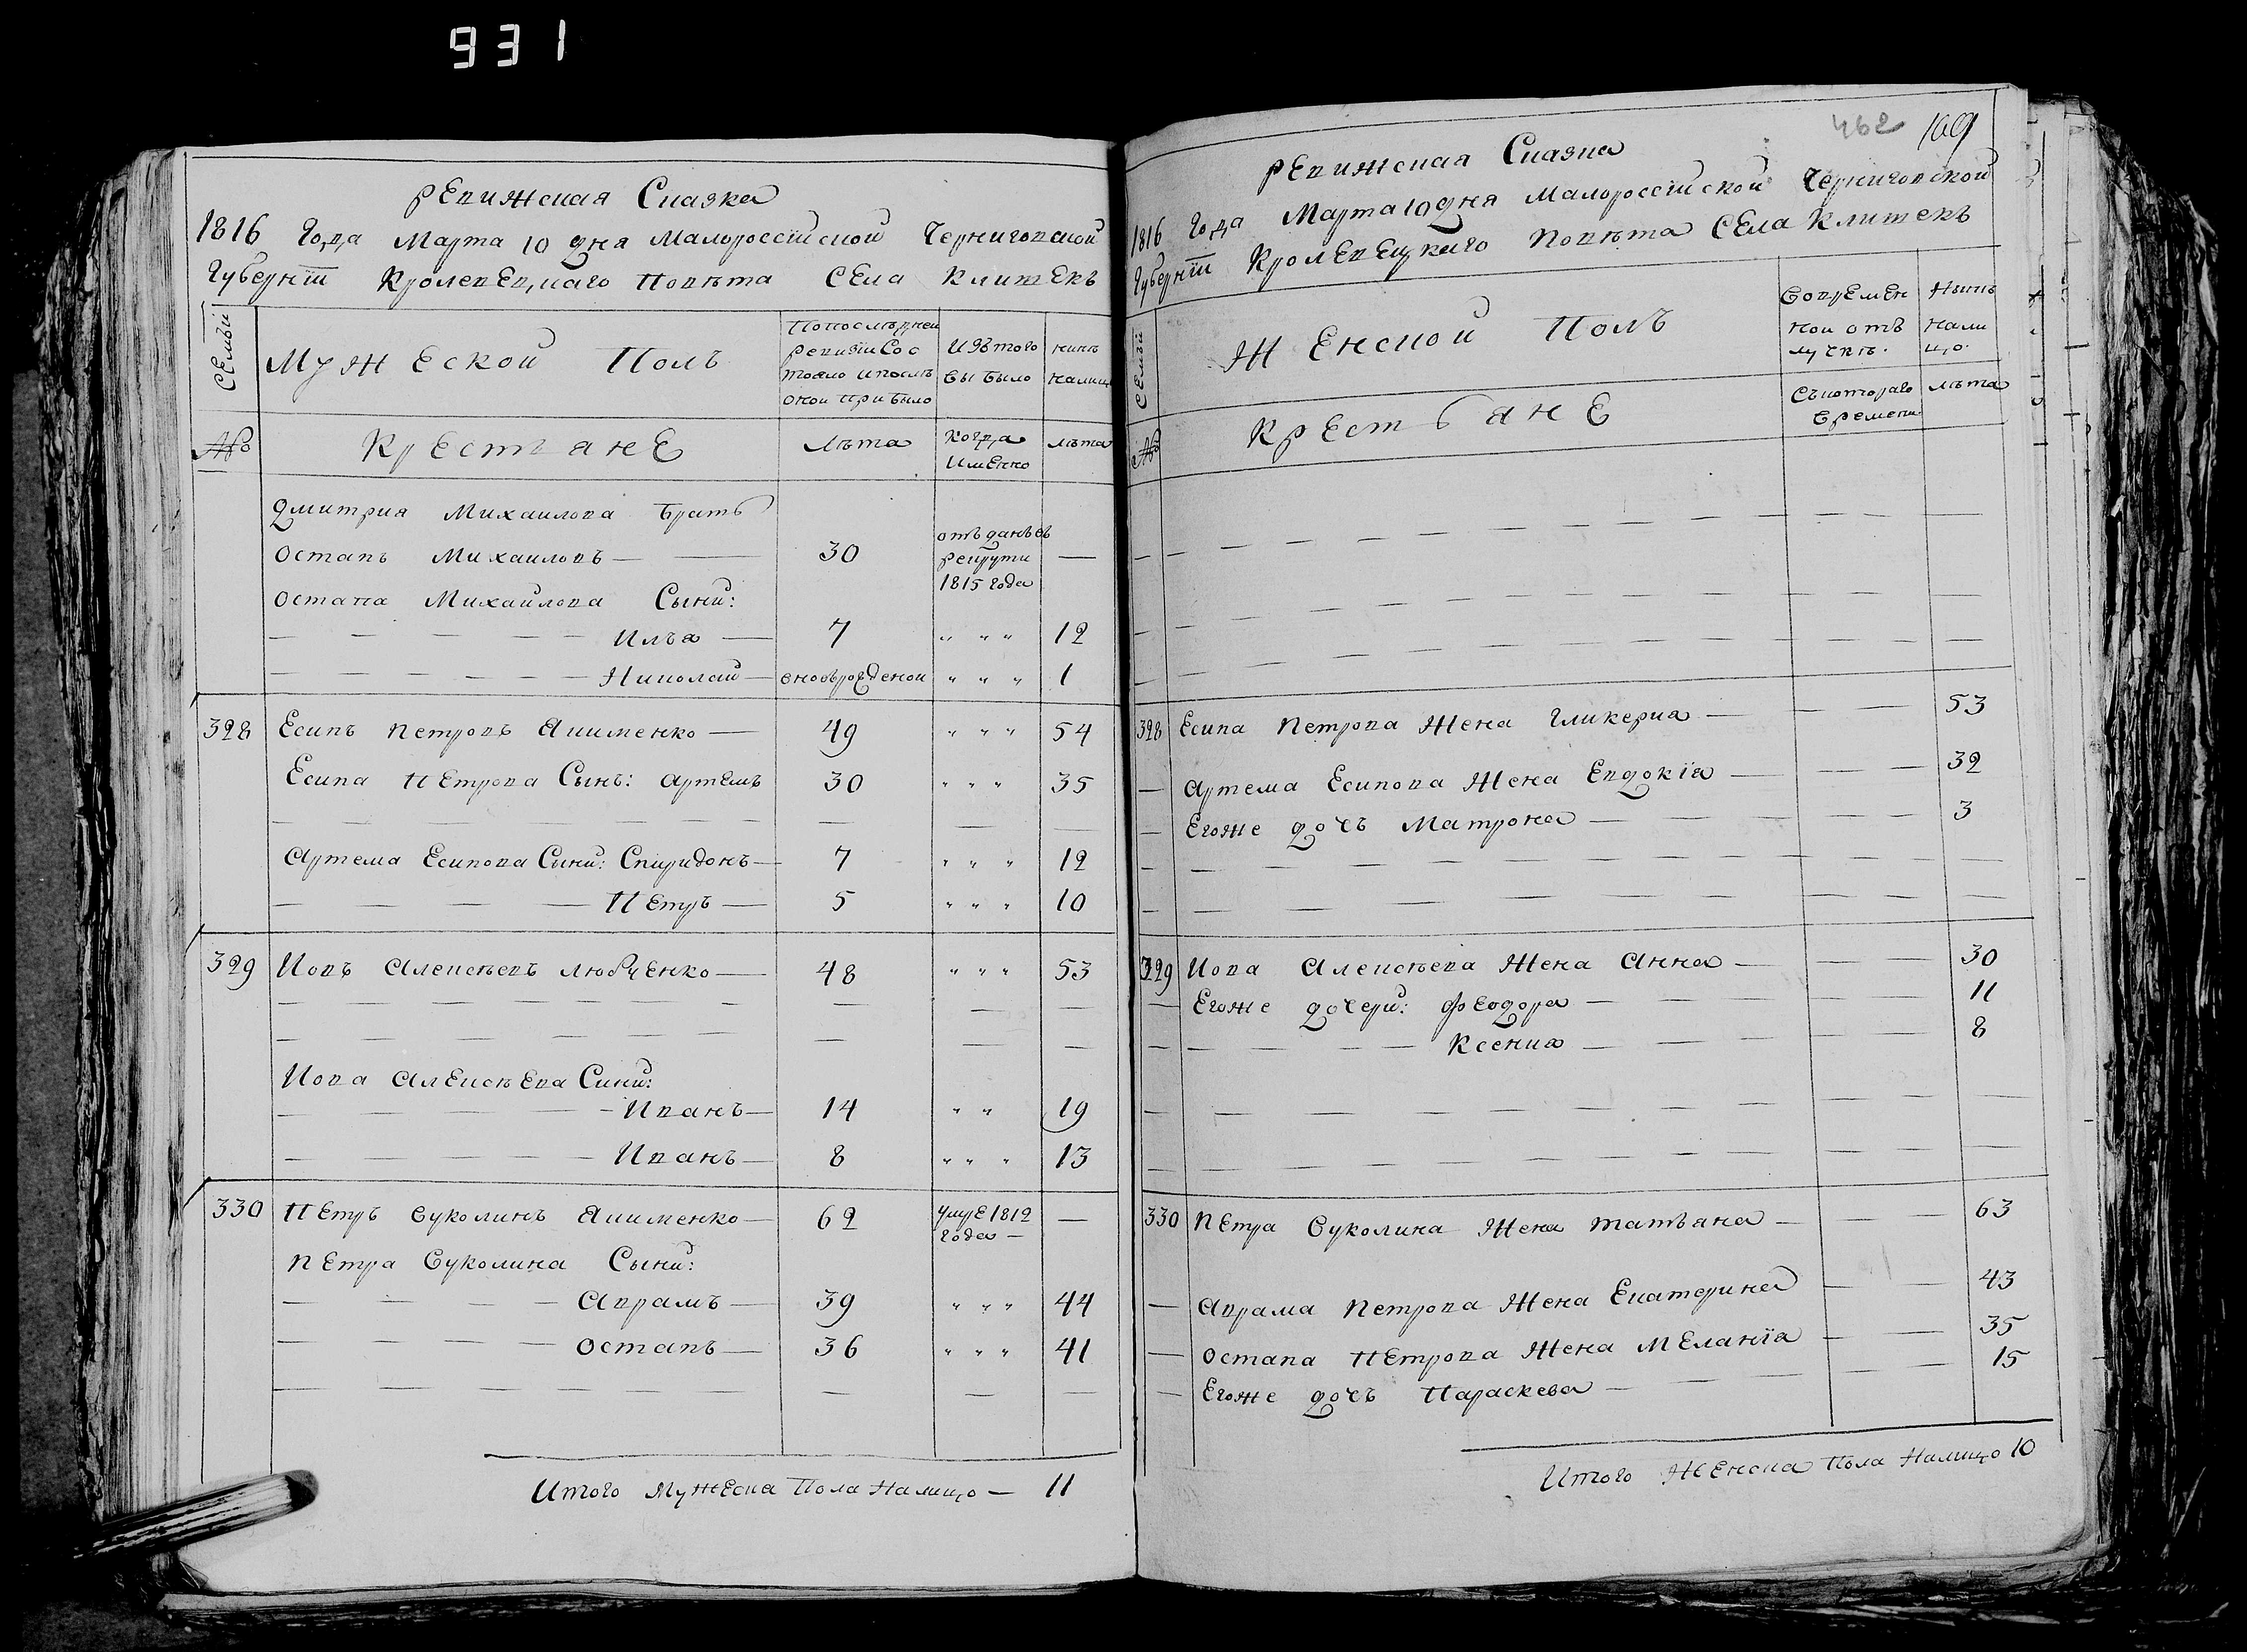 931
Ревижская Сказка
1816 Года Марта 10 дня Малороссїиской Черниговской
Губернїи Кролевецкаго Повѣта Села Клишекъ
Семьи
Мужеской Полъ
Попослѣдней
ревизїи Сос
тояло ипослѣ
оной прибыло
Изътого
выбыло
нинѣ
налицо
№
Крестьяне
Лѣта
когда
имѣнно
лѣта
Дмитрия Михаилова братъ
Остапъ Михаиловъ — — 30 отъданъвъ —
рекрути
1815 года
Остапа Михайлова Сыни:
— — — — — Илъя — 7 " " " 12
— — — — — — Николай — сновърожденои " " " 1
328 Есипъ Петровъ Якименко — 49 " " " 54
Есипа Петрова Сынъ: Артемъ 30 " " " 35
— — — — — — — — —
Артема Есипова Сыни: Спиридонъ — 7 " " " 12
— — — — — Петръ — 5 " " " 10
329 Иовъ Алексѣевъ Любченко — 48 " " " 53
— — — — — — — — — — —
— — — — — — — — —
Иова Алексѣева Сини:
— — — — — Иванъ — 14 " " 19
— — — — — Иванъ — 8 " " " 13
330 Петръ Вуколинъ Якименко — 62 умре 1812 —
года —
Петра Вуколина Сыни:
— — — — Аврамъ — 39 " " " 44
— — — — Остапъ — 36 " " " 41
— — — — — — — — — —
Итого Мужеска Пола Налицо — 11
462 169
Ревижская Сказка
1816 Года Марта 10 дня Малороссїиской Черниговской
Губернїи Кролевецкаго Повѣта Села Клишекъ
Семьи
Женской Полъ
Вовремен
ной отъ
лучкѣ.
Нынѣ
нали
цо.
№
Крестьяне
Съкотораго
времени
лѣта
— — — — — — — — — — —
— — — — — — — — — — —
— — — — — — — — — — —
— —
328 Есипа Петрова Жена Гликерия — — — 53
— Артема Есипова Жена Евдокїя — — — 32
— Егоже дочъ Матрона — — — — — — 3
— — — — — — — — — — — —
— — — — — — — — — — —
329 Иова Алексѣева Жена Анна — — — 30
— Егоже дочери: Феодора — — — — — 11
— — — — — Ксения — — — — — 8
— — — — — — — — — — —
— — — — — — — — — — —
330 Петра Вуколина Жена Татъяна — — — 63
— Аврама Петрова Жена Екатерина — — 43
— Остапа Петрова Жена Меланїя — — 35
— Егоже дочъ Параскева — — — — 15
Итого Женска Пола Налицо 10